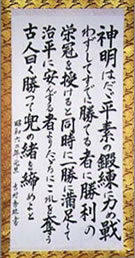 神明はたゞ平素の鍛練に力め戦
はずしてすでに勝てる者に勝利の
栄冠を授けると同時に一勝に満足して
治平に安んずる者よりたゞちにこれを奪ふ
古人曰く勝つて兜の緒を締めよと